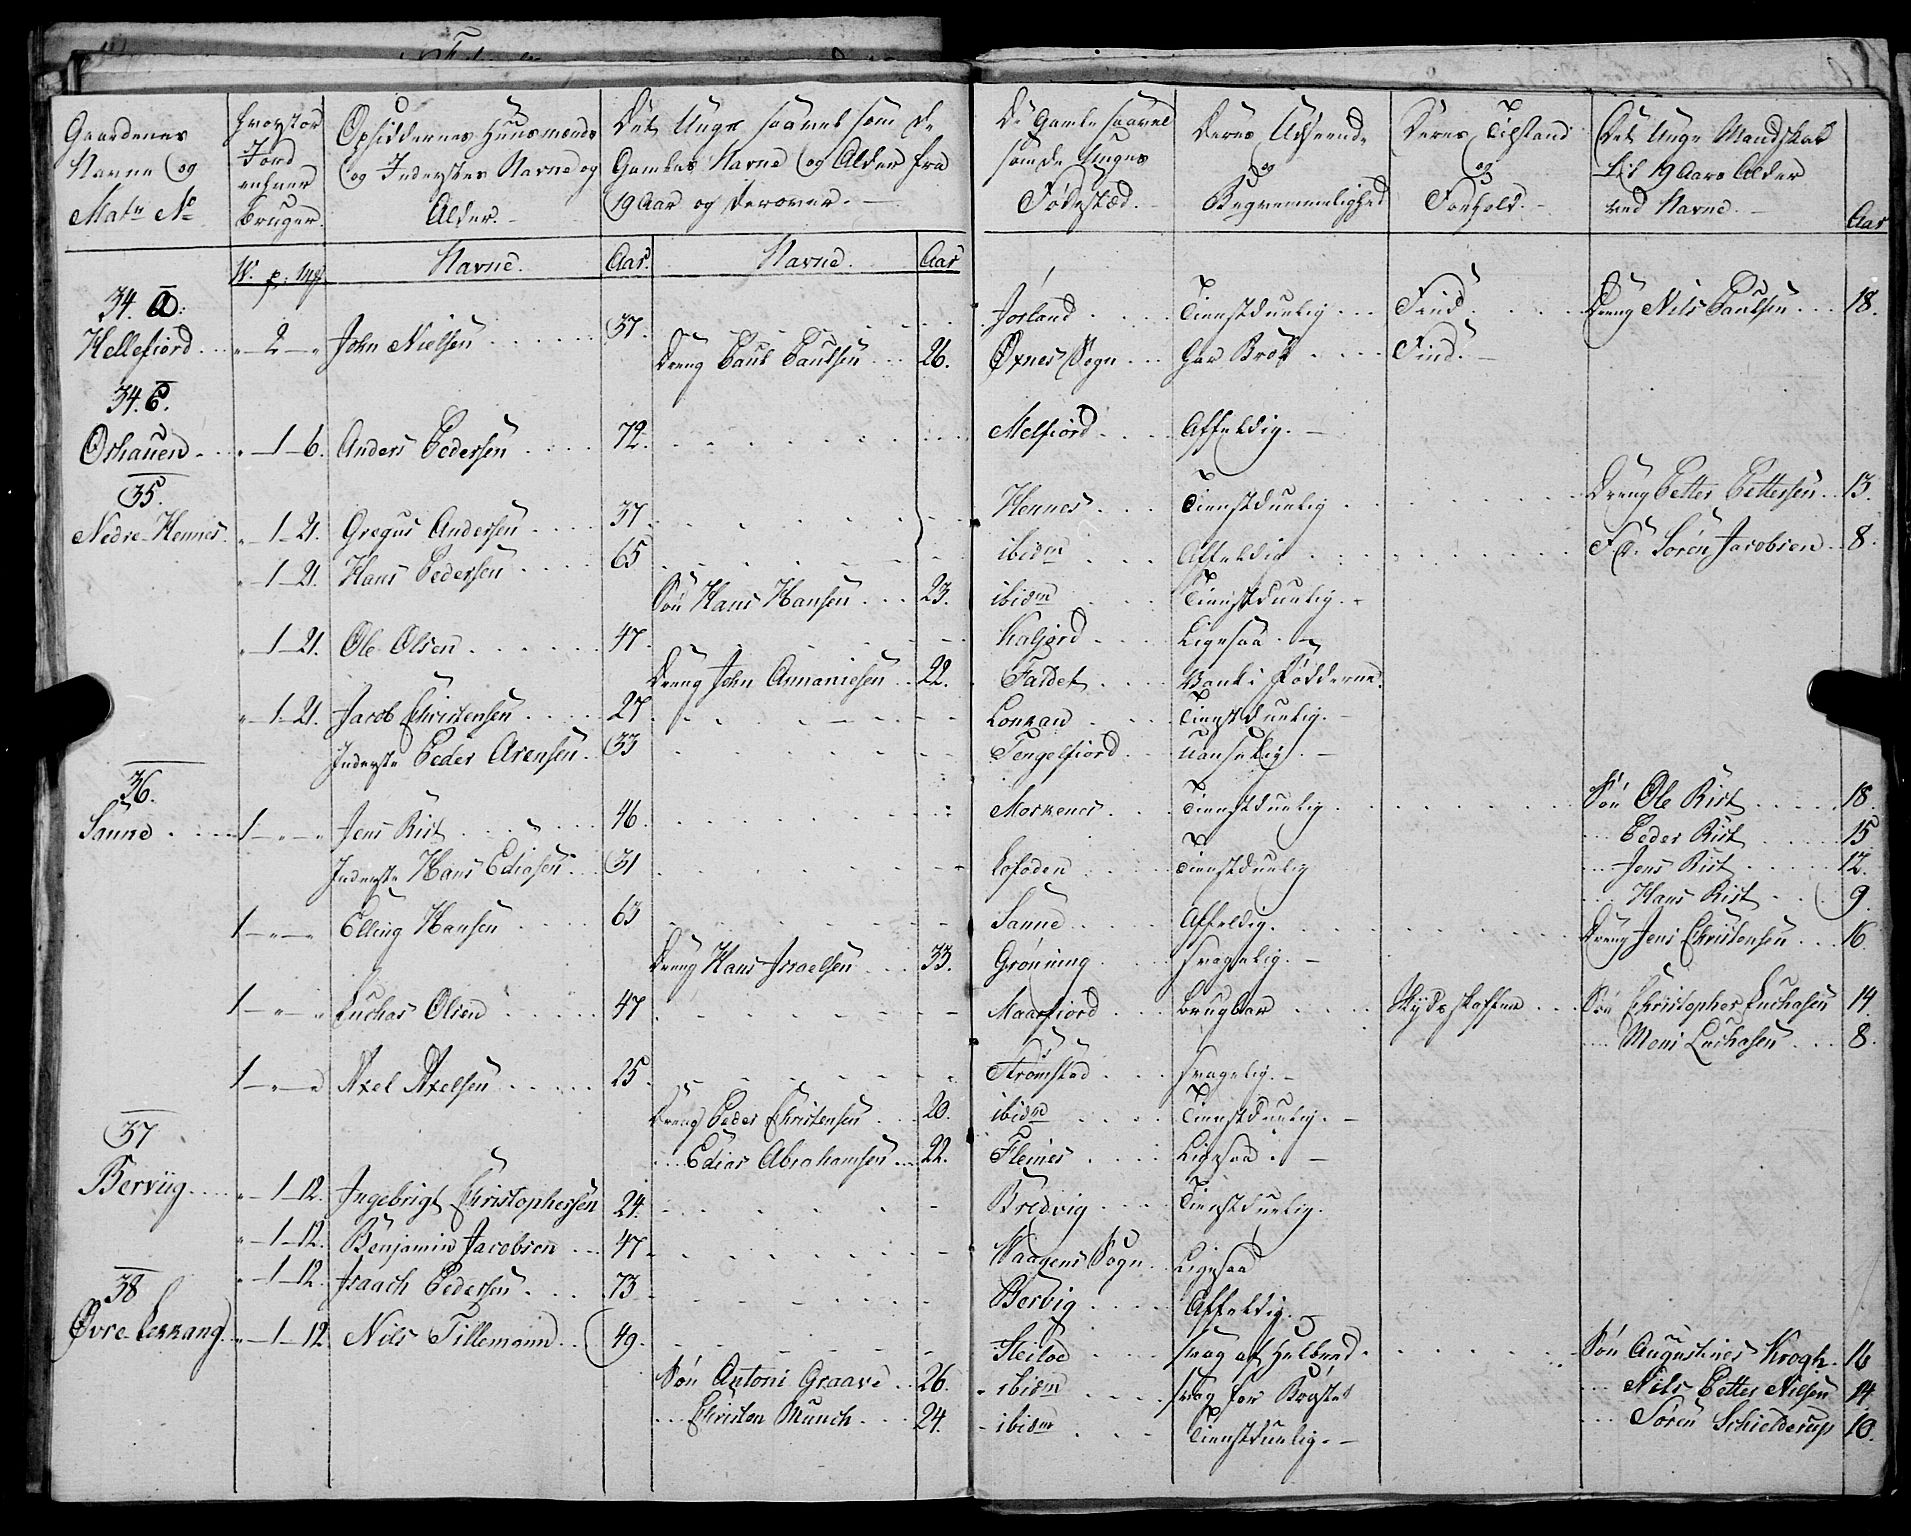 Gaardenes Navne og Matr No
hvorstor Jord enhver bruger.
Opsiddernes Huusmends og Inderstes Navne og Alder.
Det Unge saavel som de Gamles Navne og Alder fra 19 Aar og derover.
De Gamle saavel som de Unges Fødestæd.
Deres Udseende og Begvemmelighed
Deres Tilstand og Forhold.
Det Unge Mandskab til 19 Aars Alder ved Navne.
Aar
W. p. Mk. Navne. Aar. Navne. Aar
34. a: Jorland Tienstdunlig Find. Dreng Nils Paulsen 18.
Hellefiord „ 2 „ John Nielsen 37.
Dreng Paul Paulsen 26. Øxnes Sogn har Brok Find.
34. b.
Oshauen „ 1 6. Anders Pedersen 72. Melfiord Affeldig.
35.
Nedre Hennes „ 1 21. Gregus Andersen 37. Hennes Tienstdunlig Dreng Petter Pettersen 13.
„ 1 21. Hans Pedersen 65 ibidm Affeldig F. d. Soren Jacobsen 8.
Søn Hans Hansen 23. ibidm Tienstdunlig.
„ 1 21. Ole Olsen 47. Kalfjord Ligesaa.
Dreng John Annaniesen 22. Faldet Vank i Føddernne.
„ 1 21. Jacob Christensen 27. Lonkan Tienstdunlig.
Inderste Peder Arensen 33 Tengelfiord Uanselig.
36.
Sanne 1 „ „ Jens Rist 46. Moskenes Tienstdunlig Søn Ole Rist 18.
Peder Rist 15
Inderste Hans Ediasen 31 Lofoden Tienstdunlig Jens Rist 12.
Hans Rist 9.
1 „ „ Elling Hansen 63 Sanne Affeldig. Dreng Jens Christensen 16.
Dreng Hans Israelsen 33. Grønning svagelig.
1 „ „ Luchas Olsen 47 Maarfiord brugbar Skydsskaffer Søn Christopher Luchasen 14.
Mons Luchasen 8.
1 „ „ Axel Axelsen 25. Strømstad svagelig.
Dreng Peder Christensen 20. ibidm Tienstdunlig.
Edias Abrahamsen 22. Fleines Ligesaa.
37
Berviig „ 1 12. Ingebrigt Christophersen 24. Bredvig Tienstdunlig.
„ 1 12. Benjamin Jacobsen 47 Waagens Sogn Ligesaa
„ 1 12. Isaach Pedersen 73 Bervig Affeldig.
38
Øvre Lekkang „ 1 12 Nils Tillemann 49. Steiloe svag af Helbred. Søn Augustinus Krogh 16
Søn Antoni Graave 26. ibidm svag for Brystet Nils Petter Nielsen 14
Christen Munch 24. ibidm Tienstdunlig. Søren Schielderup 10.